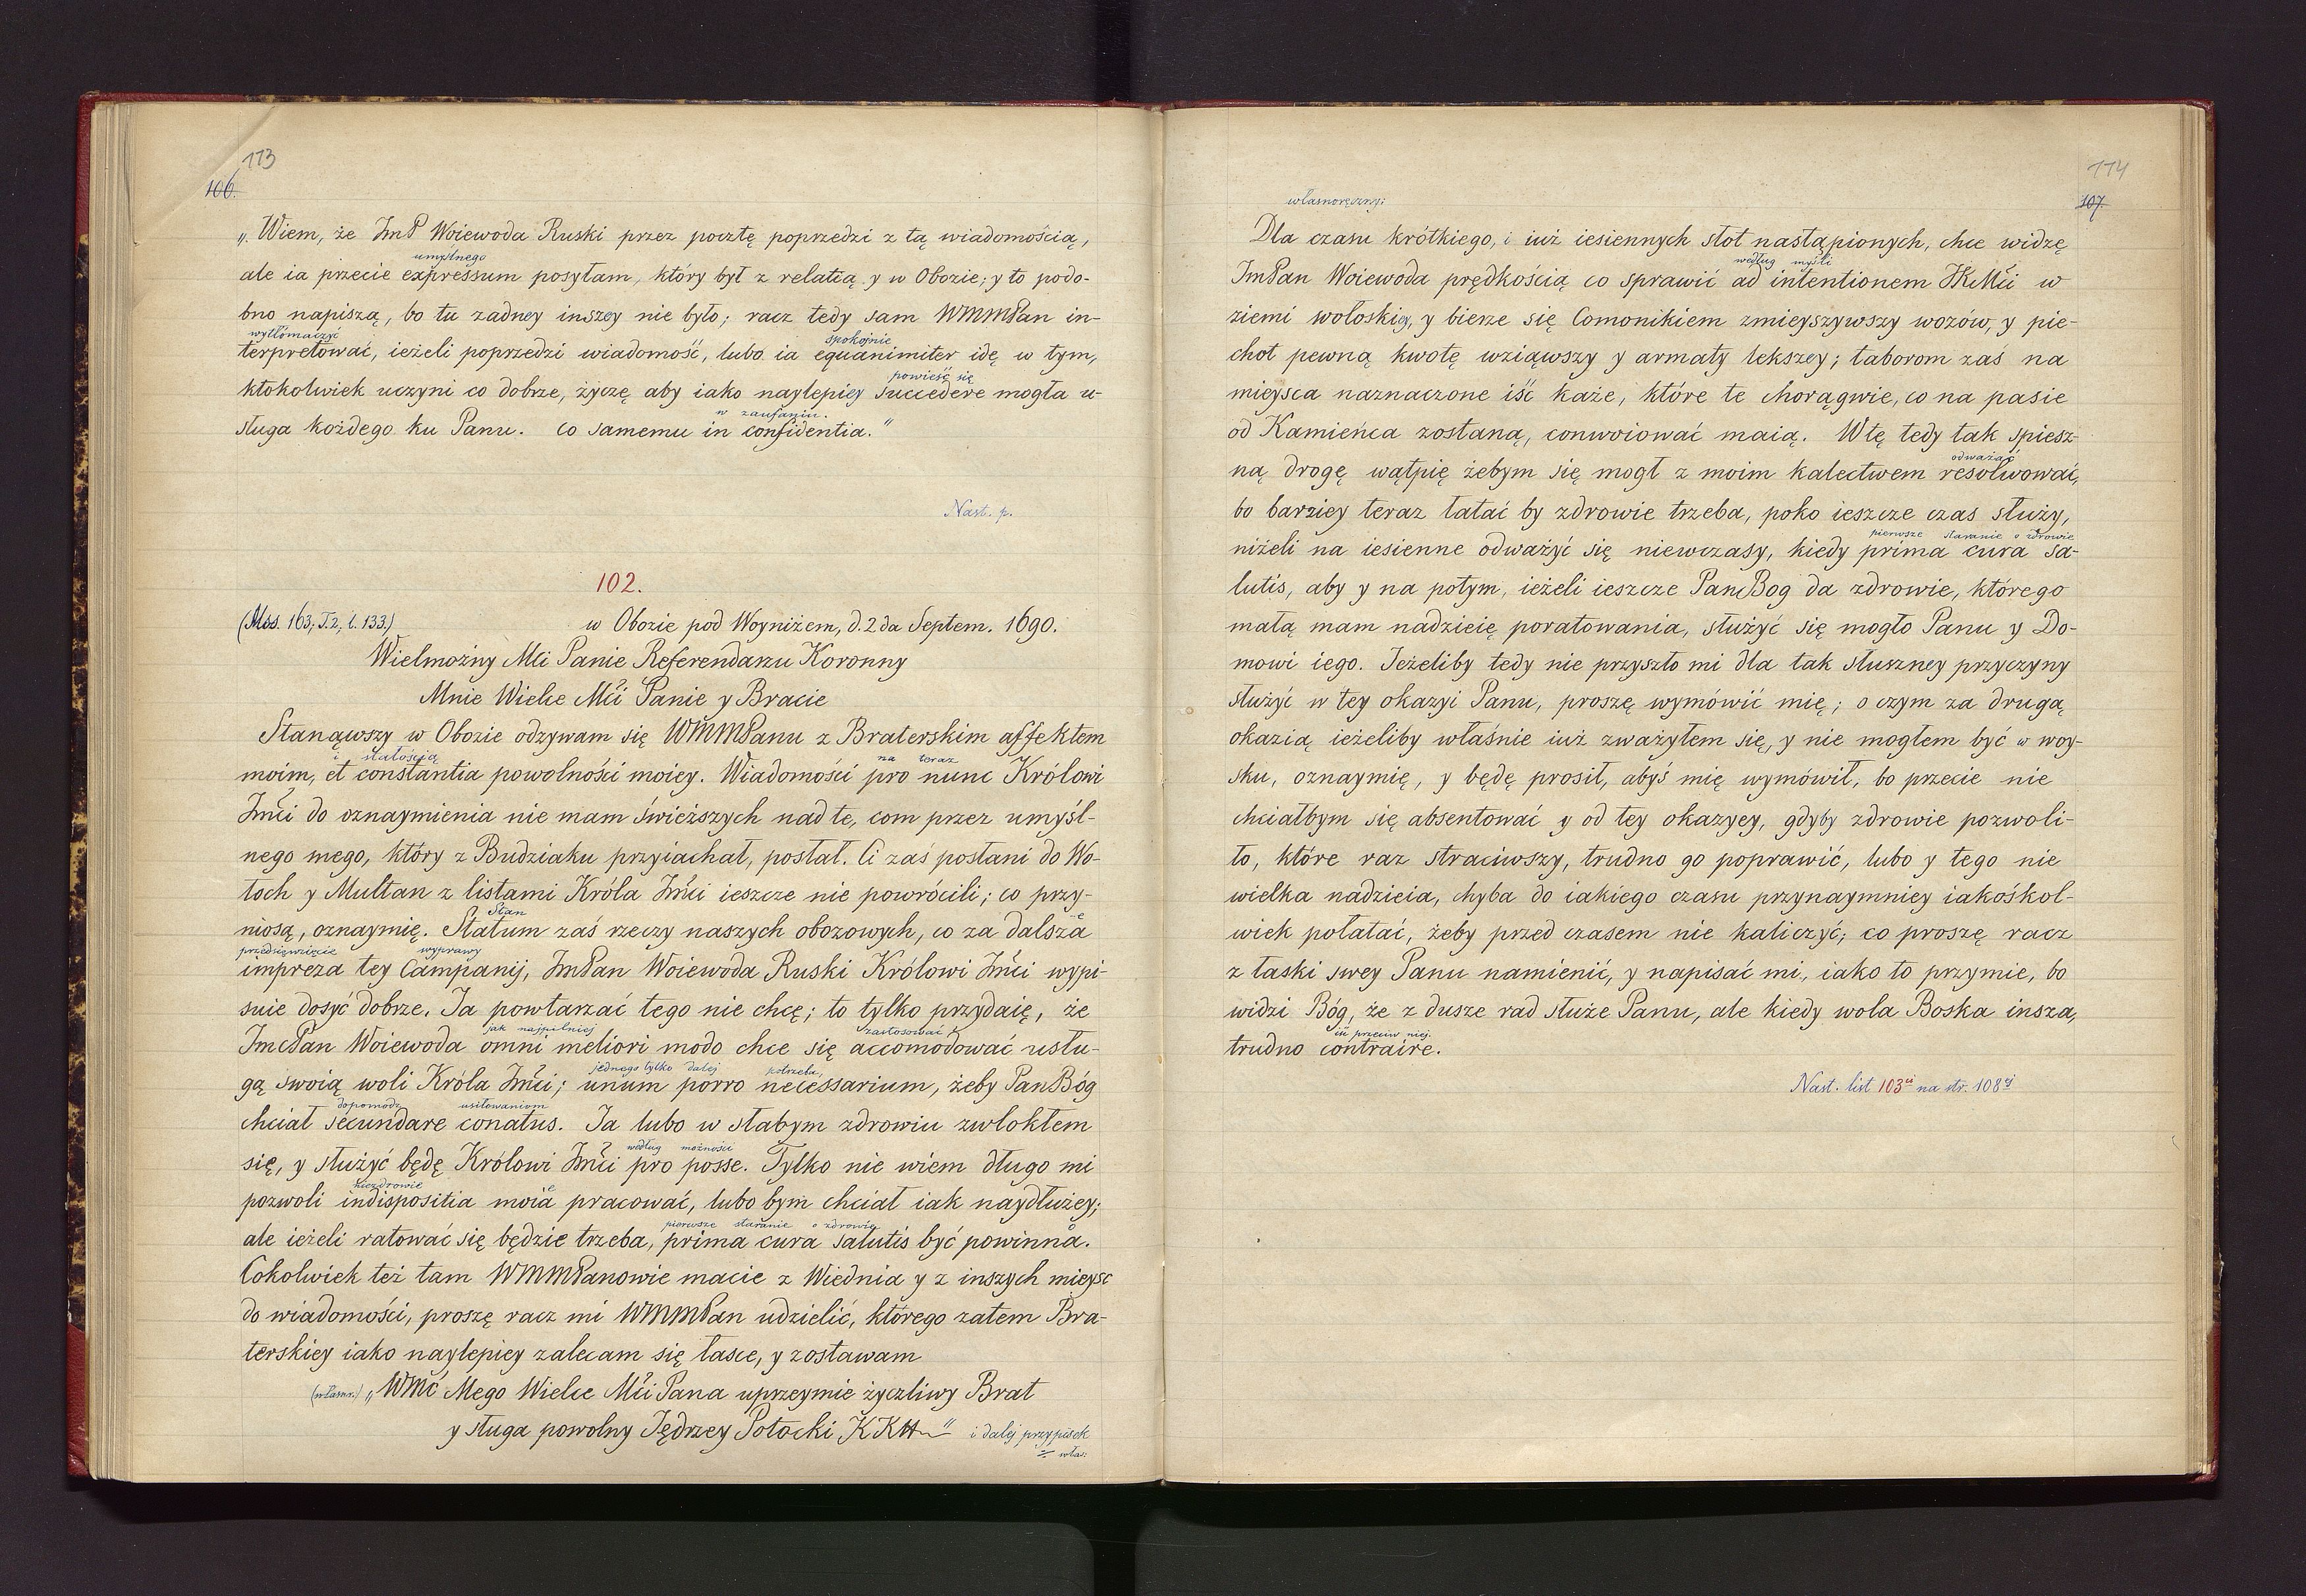 113
106.
„Wiem, że JmP Woiewoda Ruski przez pocztę poprzedzi z tą wiadomością,
umyślnego
ale ia przecie expressum posyłam, który był z relatią y w Obozie; y to podo-
bno napiszą, bo tu zadney inszey nie było; racz tedy sam WMMPan in-
wytłómaczyć spokojnie
terpretować, ieżeli poprzedzi wiadomość, lubo ia equanimiter idę w tym,
powieść się
ktokolwiek uczyni co dobrze, życzę aby iako naylepiey succedere mogła u-
w zaufaniu.
sługa kożdego ku Panu. Co samemu in confidentia."
Nast. p.
102.
(Mss. 163, T.2, l. 133.) w Obozie pod Woyniżem, d. 2da Septem. 1690.
Wielmożny Mći Panie Referendarzu Koronny
Mnie Wielce Mći Panie y Bracie
Stanąwszy w Obozie odzywam się WMMPanu z Braterskim affektem
i stałością na teraz
moim, et constantia powolności moiey. Wiadomości pro nunc Królowi
Jmći do oznaymienia nie mam świeższych nad te, com przez umyśl-
nego mego, który z Budziaku przyiachał, posłał. Ci zaś posłani do Wo-
łoch y Multan z listami Króla Jmći ieszcze nie powrócili; co przy-
Stan
niosą, oznaymię. Statum zaś rzeczy naszych obozowych, co za dalsza
przedsięwzięcie wyprawy
impreza tey Campanij, JmPan Woiewoda Ruski Królowi Jmći wypi-
suie dosyć dobrze. Ja powtarzać tego nie chcę; to tylko przydaię, że
jak najpilniej zastosować
JmcPan Woiewoda omni meliori modo chce się accomodować usłu-
jednego tylko dalej potrzeba,
gą swoią woli Króla Jmći; unum porro necessarium, żeby Pan Bóg
dopomódz usiłowaniom
chciał secundare conatus. Ja lubo w słabym zdrowiu zwlokłem
według możności
się, y służyć będę Królowi Jmći pro posse. Tylko nie wiem długo mi
niezdrowie
pozwoli indispositia moia pracować, lubo bym chciał iak naydłużey;
pierwsze staranie o zdrowie
ale ieżeli ratować się będzie trzeba, prima cura salutis być powinna.
Cokolwiek też tam WMMPanowie macie z Wiednia y z inszych mieysc
do wiadomości, proszę racz mi WMMPan udzielić, którego zatem Bra-
terskiey iako naylepiey zalecam się łasce, y zostawam
(własnr.) „WMć Mego Wielce Mći Pana uprzeymie życzliwy Brat
y sługa powolny Jędrzey Potocki KKH" i dalej przypisek
włas:
114
107.
własnoręczny:
Dla czasu krótkiego, i iuż iesiennych słot nastąpionych, chce widzę
według myśli
JmPan Woiewoda prędkością co sprawić ad intentionem JKMći w
ziemi wołoskiey, y bierze się Comonikiem zmieyszywszy wozów, y pie-
chot pewną kwotę wziąwszy y armaty lekszey; taborom zaś na
mieysca naznaczone iść każe, które te chorągwie, co na pasie
od Kamieńca zostaną, conwoiować maią. Wtę tedy tak spiesz-
odważać
ną drogę wątpię żebym się mogł z moim kalectwem resolwować,
bo barziey teraz łatać by zdrowie trzeba, poko ieszcze czas służy,
pierwsze staranie o zdrowie
niżeli na iesienne odważyć się niewczasy, kiedy prima cura sa-
lutis, aby y na potym, ieżeli ieszcze Pan Bog da zdrowie, którego
małą mam nadzieię poratowania, służyć się mogło Panu y Do-
mowi iego. Jeżeliby tedy nie przyszło mi dla tak słuszney przyczyny
służyć w tey okazyi Panu, proszę wymówić mię; o czym za drugą
okazią ieżeliby właśnie iuż zważyłem się, y nie mogłem być w woy-
sku, oznaymię, y będę prosił, abyś mię wymówił, bo przecie nie
chciałbym się absentować y od tey okazyey, gdyby zdrowie pozwoli-
ło, które raz straciwszy, trudno go poprawić, lubo y tego nie
wielka nadzieia, chyba do iakiego czasu przynaymniey iakośkol-
wiek połatać, żeby przed czasem nie kaliczyć; co proszę racz
z łaski swey Panu namienić, y napisać mi, iako to przymie, bo
widzi Bóg, że z dusze rad służe Panu, ale kiedy wola Boska insza,
iść przeciw niej.
trudno contraire.
Nast. list 103ci na str. 108ej